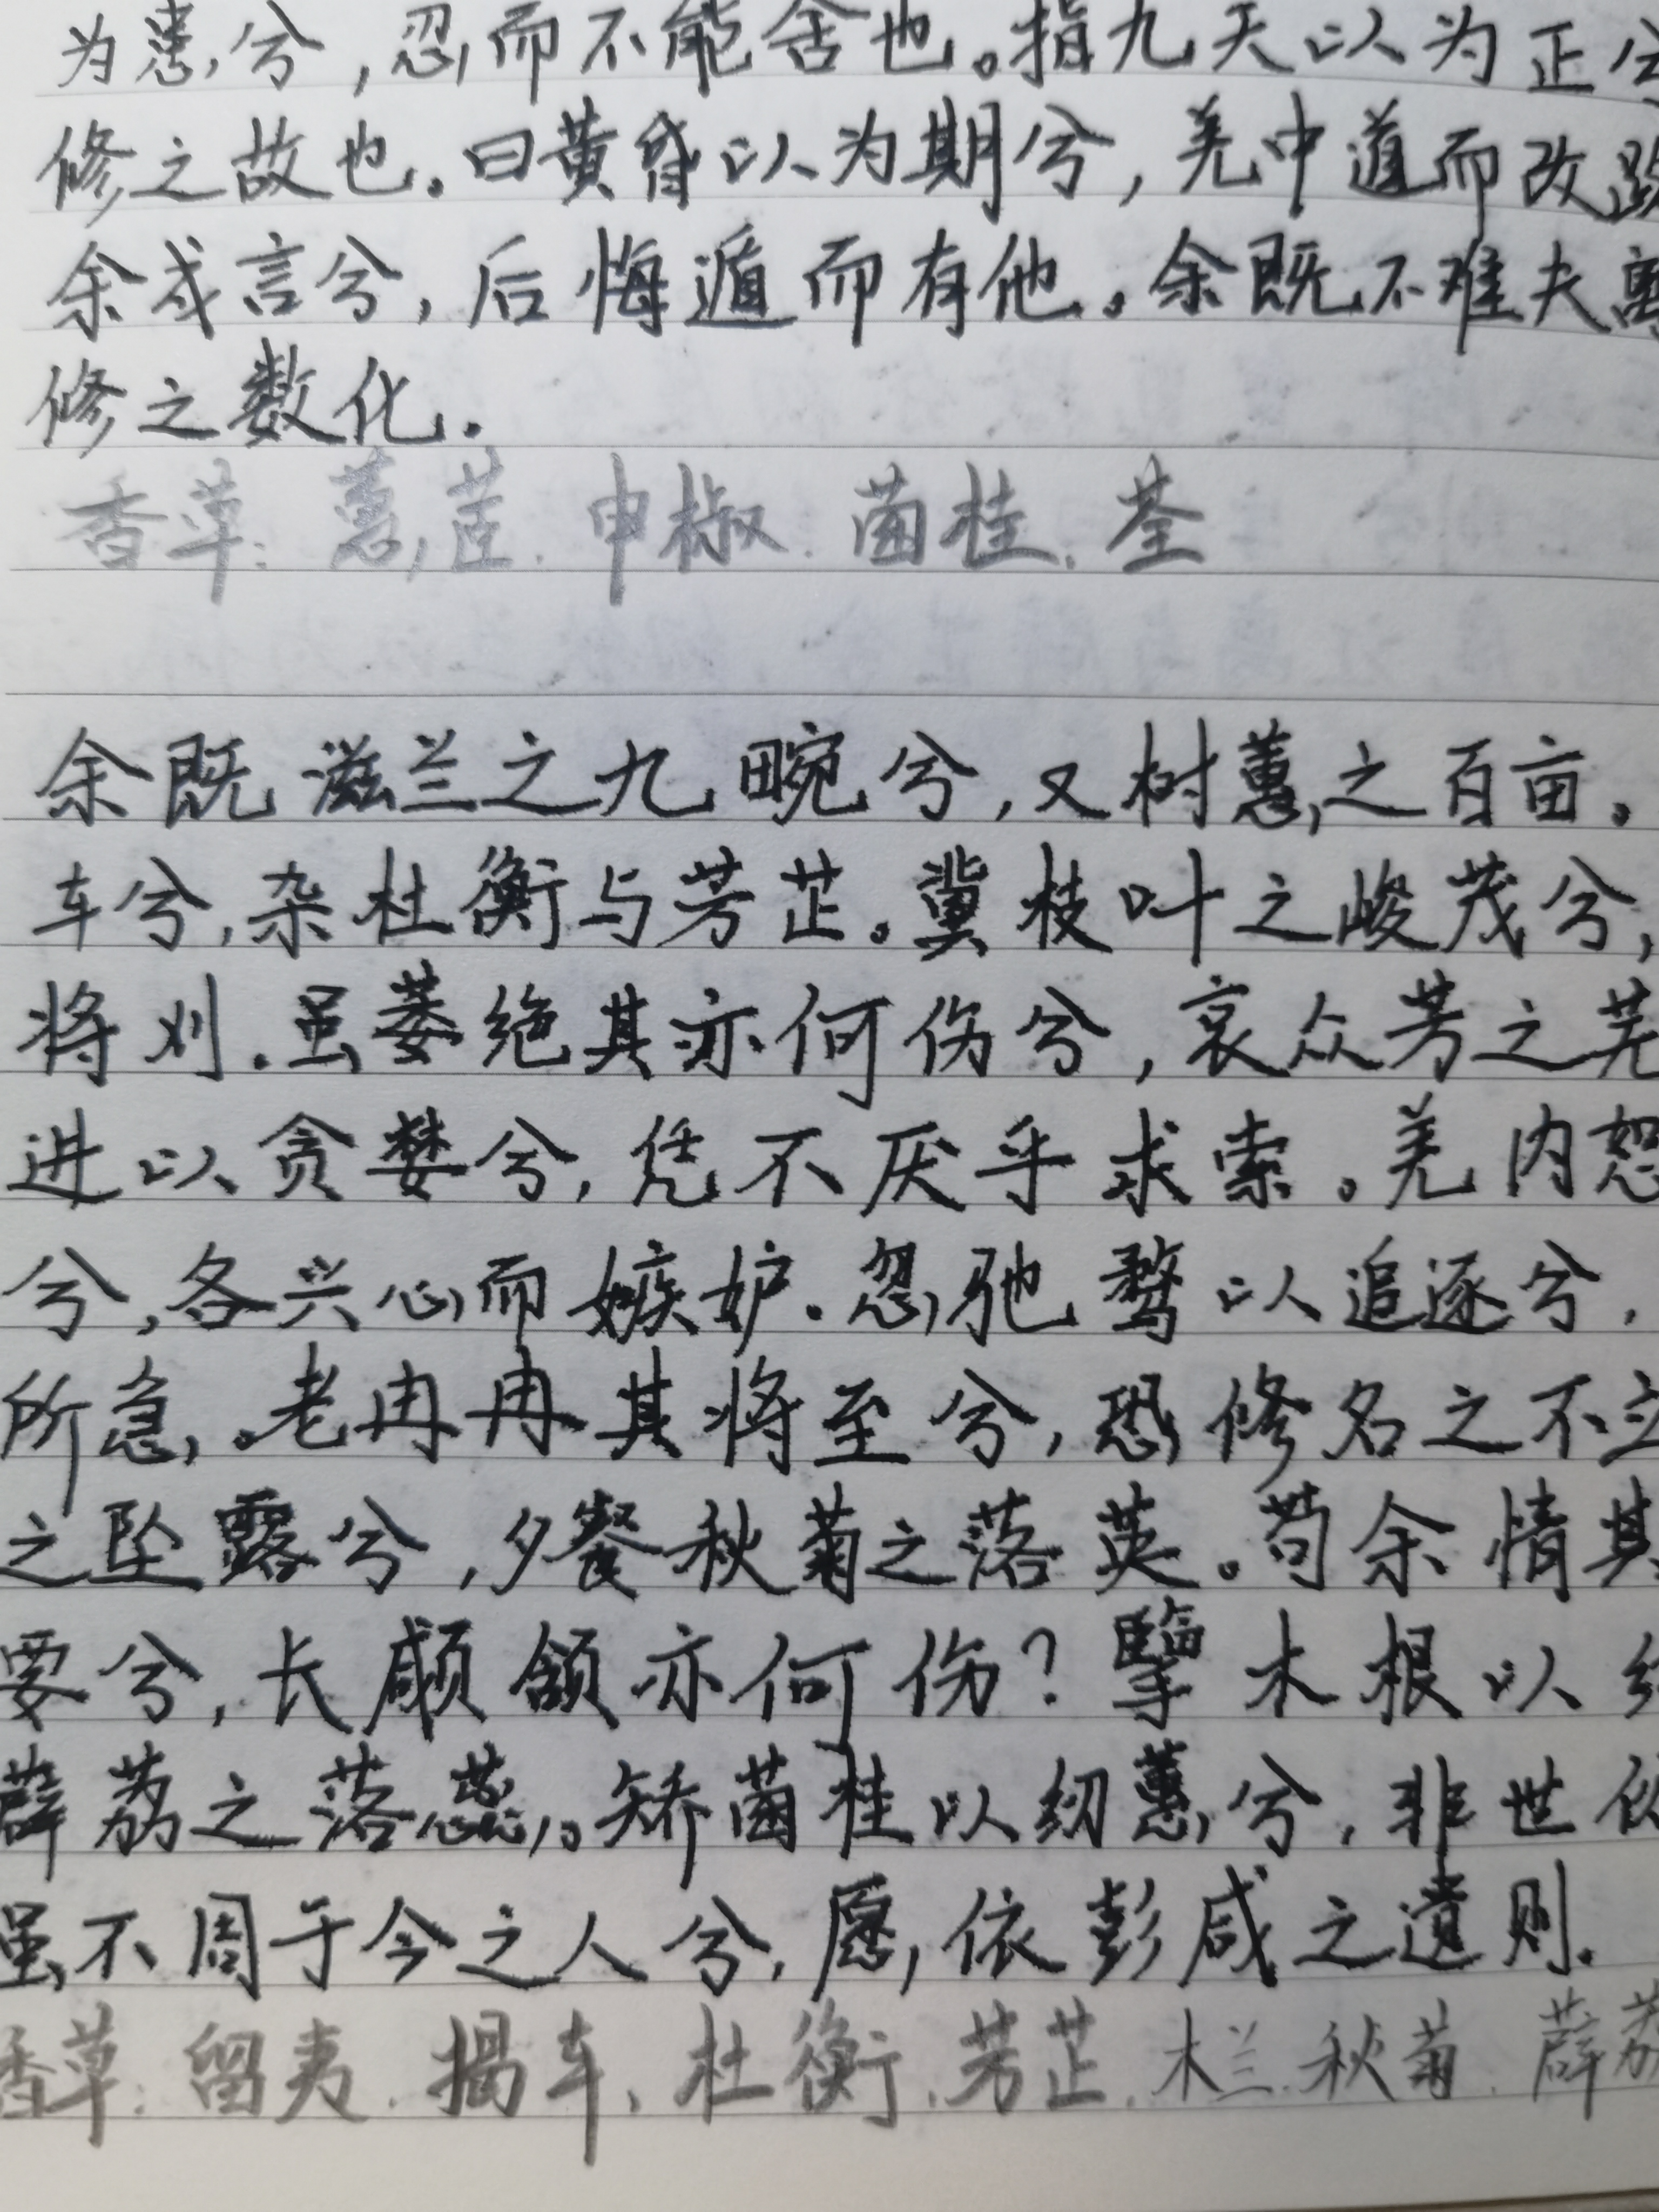 为患兮，忍而不能舍也。指九天以为正兮
修之故也。曰黄昏以为期兮，羌中道而改路
余成言兮，后悔遁而有他。余既不难夫离
修之数化。
香草：蕙茝、申椒、菌桂、荃
余既滋兰之九畹兮，又树蕙之百亩。
车兮，杂杜衡与芳芷。冀枝叶之峻茂兮，
将刈。虽萎绝其亦何伤兮，哀众芳之芜
进以贪婪兮，凭不厌乎求索。羌内恕
兮，各兴心而嫉妒。忽驰骛以追逐兮，
所急。老冉冉其将至兮，恐修名之不立
之坠露兮，夕餐秋菊之落英。苟余情其
要兮，长顑颔亦何伤？擥木根以
薜荔之落蕊。矫菌桂以纫蕙兮，非世俗
虽不周于今之人兮，愿依彭咸之遗则。
香草：留夷、揭车、杜衡、芳芷、木兰、秋菊、薜荔